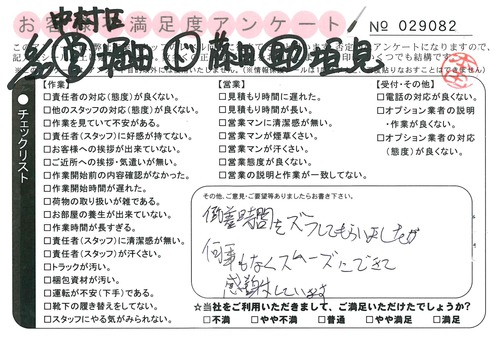 お客様満足度アンケート
№ 029082
中村区
堀田
藤田
垣見
チェックリスト
【作業】
□責任者の対応(態度)が良くない。
□他のスタッフの対応(態度)が良くない。
□作業を見ていて不安がある。
□責任者(スタッフ)に好感が持てない。
□お客様への挨拶が出来ていない。
□ご近所への挨拶・気遣いが無い。
□作業開始前の内容確認がなかった。
□作業開始時間が遅れた。
□荷物の取り扱いが雑である。
□お部屋の養生が出来ていない。
□作業時間が長すぎる。
□責任者(スタッフ)に清潔感が無い。
□責任者(スタッフ)が汗くさい。
□トラックが汚い。
□梱包資材が汚い。
□運転が不安(下手)である。
□靴下の履き替えをしてない。
□スタッフにやる気がみられない。
【営業】
□営業に遅れた。
□見積もり時間に遅れた。
□見積もり時間が長い。
□営業マンに清潔感が無い。
□営業マンが煙草くさい。
□営業マンが汗くさい。
□営業態度が良くない。
□営業の説明と作業が一致してない。
【受付・その他】
□電話の対応が良くない。
□オプション業者の説明
・作業が良くない。
□オプション業者の対応
(態度)が良くない。
その他、ご意見・ご要望等ありましたらお書き下さい。
時間をズラしてもらいましたが
何事もなくスムーズにできて
感謝しています
☆当社をご利用いただきまして、ご満足いただけたでしょうか?
□不満 □やや不満 □普通 □やや満足 □満足